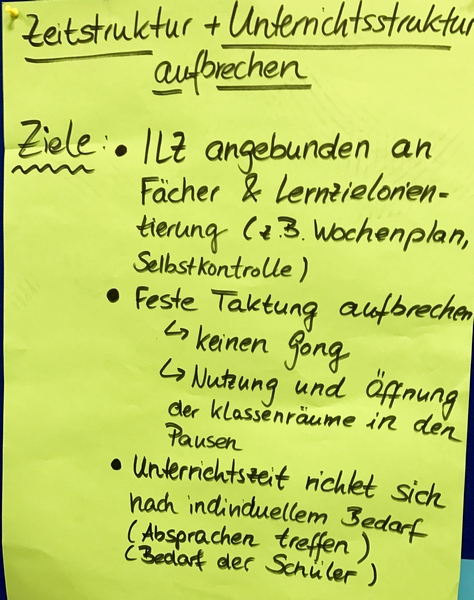 Zeitstruktur + Unterrichtsstruktur
aufbrechen
Ziele: • ILZ angebunden an
Fächer & Lernzielorien-
tierung (z.B. Wochenplan,
Selbstkontrolle)
• Feste Taktung aufbrechen
↳ keinen Gong
↳ Nutzung und Öffnung
der Klassenräume in den
Pausen
• Unterrichtszeit richtet sich
nach individuellem Bedarf
(Absprachen treffen)
(Bedarf der Schüler)